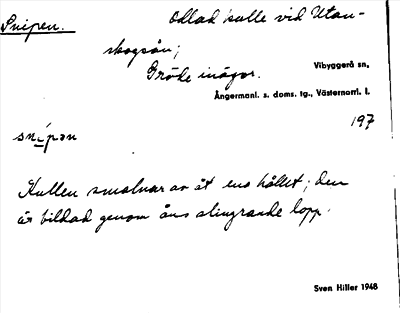 Snipen. Odlad kulle vid Utan-
skogsån;
Gröde inägor.
Vibyggerå sn,
Ångermanl. s. doms. tg., Västernorrl. l.
197
snípən
Kullen smalnar av åt ena hållet; den
är bildad genom åns slingrande lopp.
Sven Hiller 1948